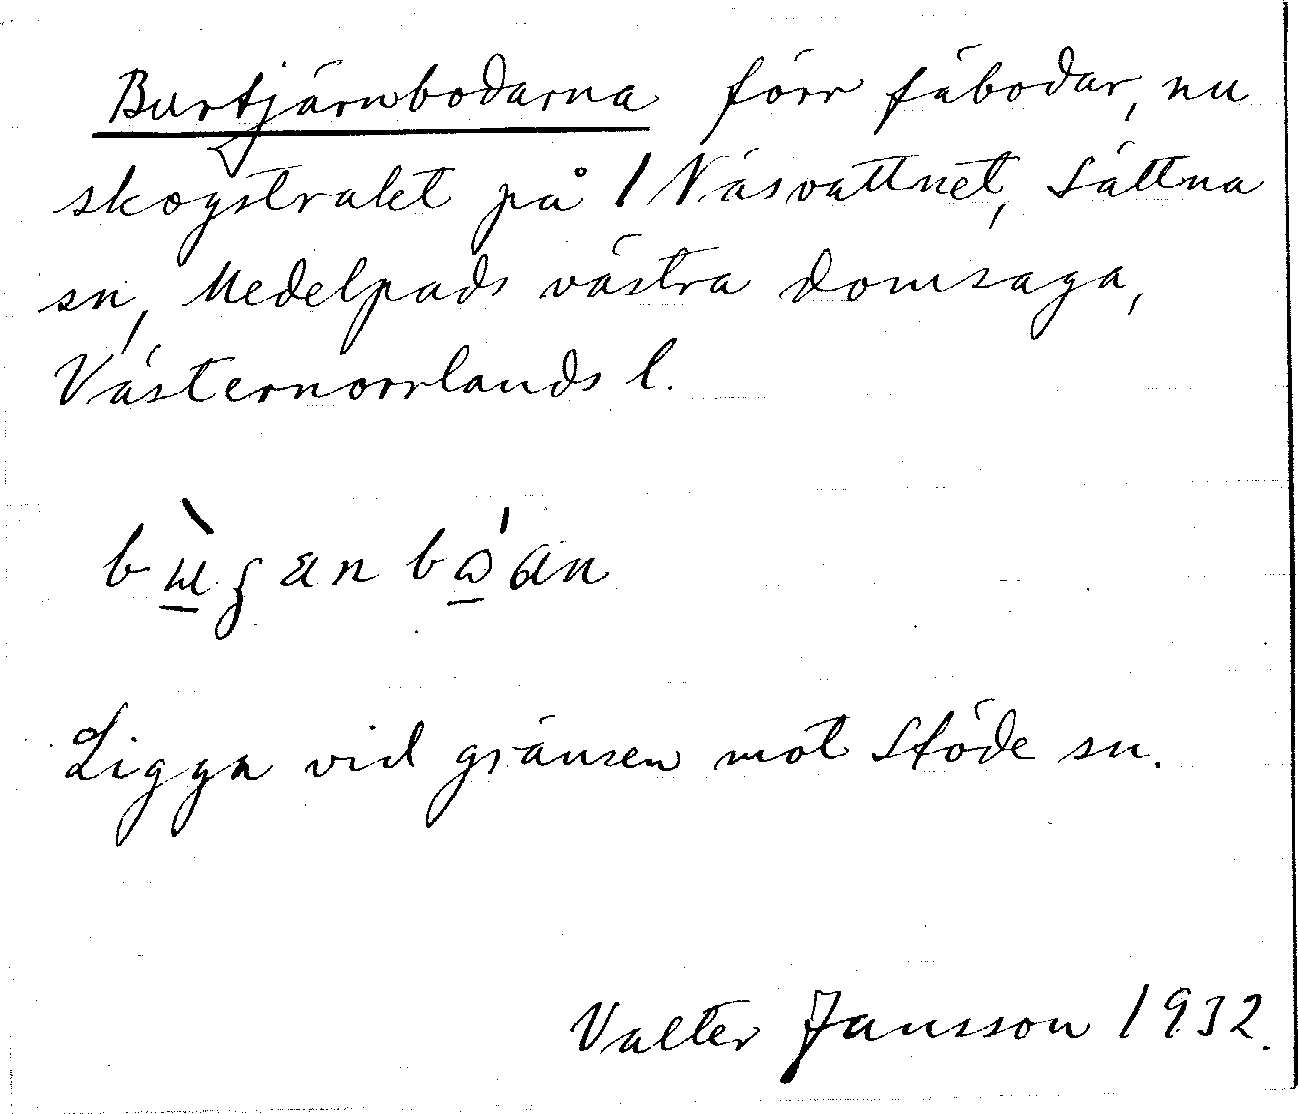 Burtjärnbodarna förr fäbodar, nu
skogstrakt på 1 Näsvattnet, Sättna
sn, Medelpads västra domsaga,
Västernorrlands l.
Ligga vid gränsen mot Stöde sn.
Valter Jansson 1932.